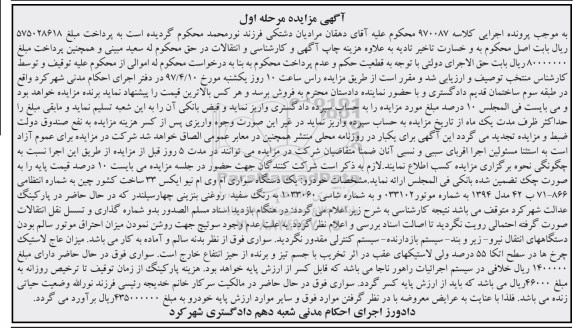 آگهی مزایده مرحله اول
به موجب پرونده اجرایی کلاسه ۹۷۰۰۸۷ محکوم علیه آقای دهقان مرادیان دشتکی فرزند نورمحمد محکوم گردیده است به پرداخت مبلغ ۵۷۵۰۲۸۶۱۸
ریال بابت اصل محکوم به و خسارت تاخیر تادیه به علاوه هزینه چاپ آگهی و کارشناسی و انتقالات در حق محکوم له سعید مبینی و همچنین پرداخت مبلغ
۸۰۰۰۰۰۰۰ ریال بابت حق الاجرای دولتی با توجه به قطعیت حکم و عدم پرداخت محکوم به بنا به درخواست محکوم له اموالی از محکوم علیه توقیف و توسط
کارشناس منتخب توصیف و ارزیابی شد و مقرر است از طریق مزایده راس ساعت ۱۰ روز یکشنبه مورخ ۹۷/۴/۱۰ در دفتر اجرای احکام مدنی شهرکرد واقع
در طبقه سوم ساختمان قدیم دادگستری و با حضور نماینده دادستان محترم به فروش برسد و هر کس بالاترین قیمت را پیشنهاد نماید برنده مزایده خواهد بود
و می بایست فی المجلس ۱۰ درصد مبلغ مورد مزایده را به حساب سپرده دادگستری واریز نماید و فیش بانکی آن را به این شعبه تسلیم نماید و مابقی مبلغ را
حداکثر ظرف مدت یک ماه از تاریخ مزایده به حساب سپرده واریز نماید در غیر این صورت وجه واریزی پس از کسر هزینه مزایده به نفع صندوق دولت
ضبط و مزایده تجدید می گردد این آگهی برای یکبار در روزنامه محلی منتشر همچنین در معابر عمومی الصاق خواهد شد شرکت در مزایده برای عموم آزاد
است به استثنا مسئولین اجرا اقربای سببی و نسبی آنان ضمنا متقاضیان شرکت در مزایده می توانند در مدت ۵ روز قبل از مزایده از طریق این اجرا نسبت به
چگونگی نحوه برگزاری مزایده کسب اطلاع نمایند.لازم به ذکر است شرکت کنندگان جهت حضور در جلسه مزایده می بایست ۱۰ درصد قیمت پایه را به
صورت چک تضمین شده بانکی فی المجلس ارائه نماید.مشخصات خودرو: یک دستگاه سواری ام وی ام نیو ایکس ۳۳ ساخت کشور چین به شماره انتظامی
۷۱-۸۶۶ ب ۴۲ مدل ۱۳۹۴ به شماره موتور ۰۳۳۱۰۲ و به شماره شاسی ۱۰۳۳۰۶۰ به رنگ سفید روغنی بنزینی چهارسیلندر که در حال حاضر در پارکینگ
عدالت شهرکرد متوقف می باشد نتیجه کارشناسی به شرح زیر اعلام می گردد: در هنگام بازدید اسناد مسلم الصدور بدو شماره گذاری و تسسل نقل انتقالات
صورت گرفته احتمالی رویت نگردید تا اصالت اسناد بررسی و اعلام نظر گردد. به علت عدم وجود سوئیچ جهت روشن نمودن میزان احتراق موتور سالم بودن
دستگاههای انتقال نیرو- زیر و بند- سیستم بازدارنده- سیستم کنترلی مقدور نگردید. سواری فوق از نظر بدنه سالم و آماده به کار می باشد. میزان عاج لاستیک
چرخ ها در سطح اتکا ۵۵ درصد ولی لاستیکهای عقب در اثر تخریب با جسم تیز و برنده از حیز انتفاع خارج است. سواری فوق در حال حاضر دارای مبلغ
۱۴۰۰۰۰۰ ریال خلافی در سیستم اجرائیات راهور ناجا می باشد که قابل کسر از ارزش پایه خواهد بود. هزینه پارکینگ از زمان توقیف تا ترخیص روزانه به
مبلغ ۴۶۰۰۰ ریال می باشد که باید از ارزش پایه کسر گردد. سواری فوق در حال حاضر در مالکیت سرکار خانم خدیجه رئیسی فرزند نورالله وضعیت حیاتی
زنده می باشد. فلذا با عنایت به عرایض معروضه با در نظر گرفتن موارد فوق و سایر موارد ارزش پایه خودرو به مبلغ ۴۳۵۰۰۰۰۰۰ ریال برآورد می گردد.
دادورز اجرای احکام مدنی شعبه دهم دادگستری شهرکرد